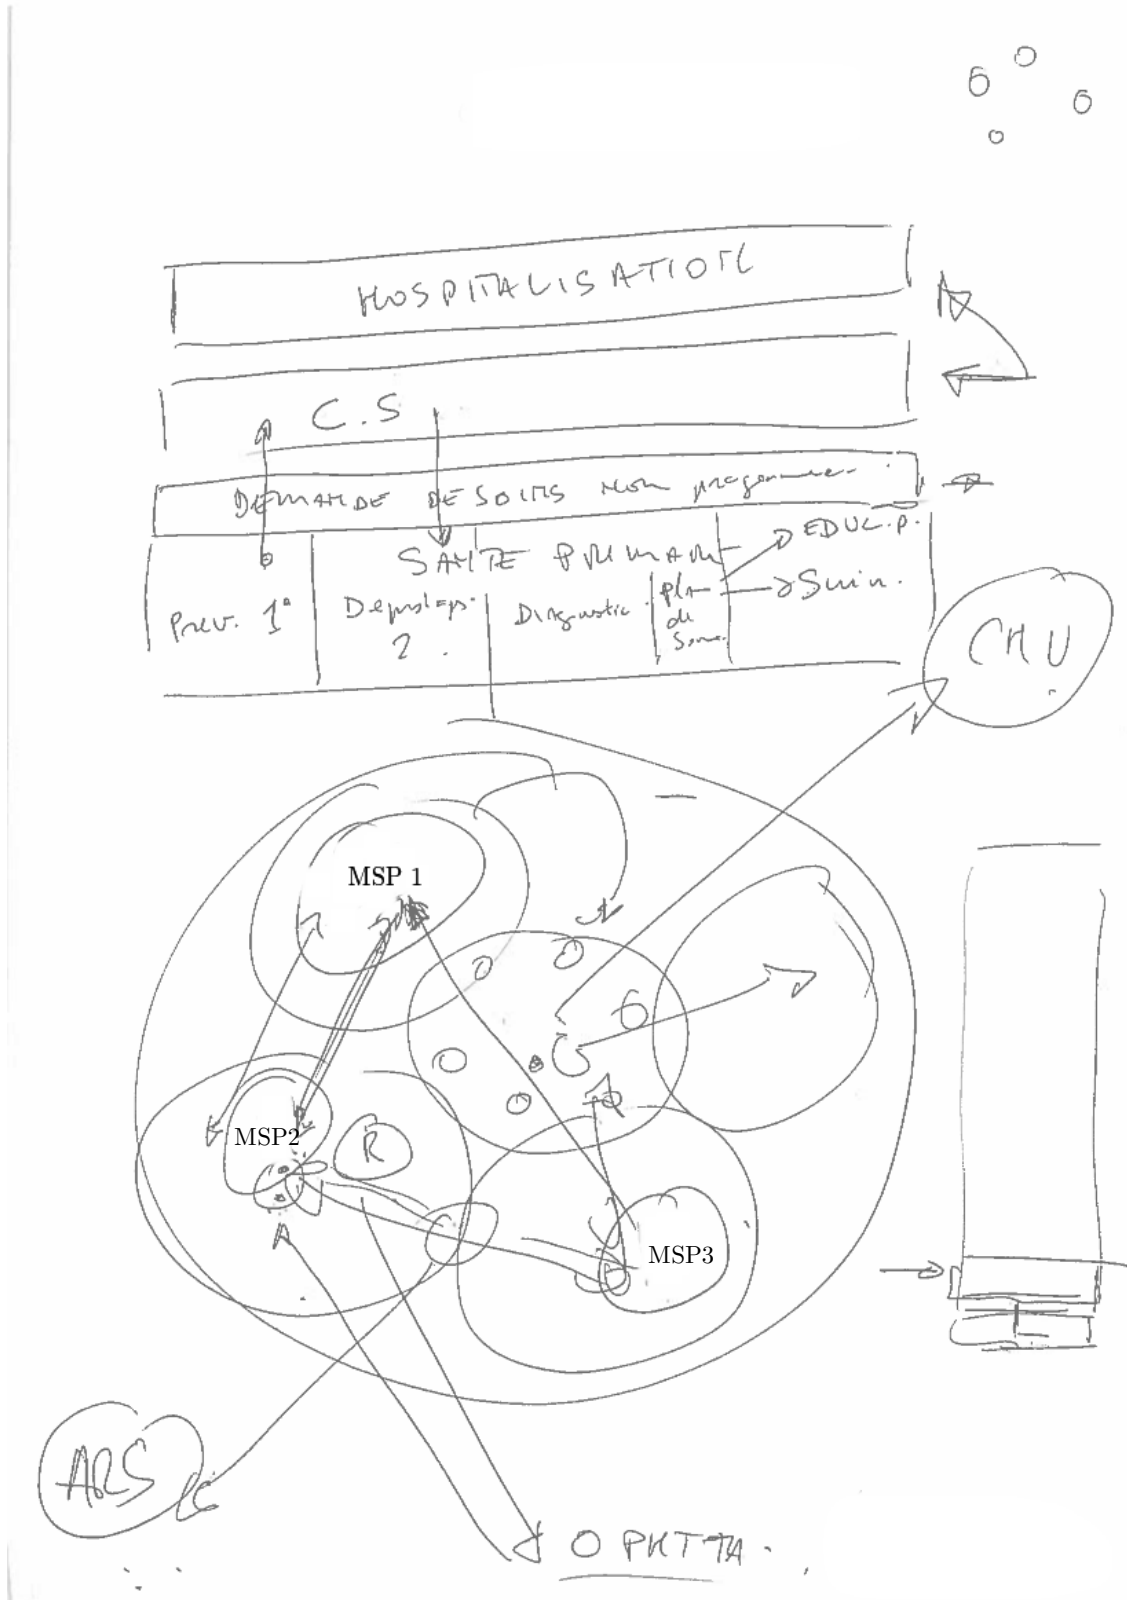 HOSPITALISATION
C.S
DEMANDE DE SOINS NON programmé
SANTE PRIMAIRE
EDUC.P.
Prev. 1°
2.
Diagnostic
plan
de
Soins
Suivi.
CHU
MSP 1
MSP2
R
MSP3
ARS